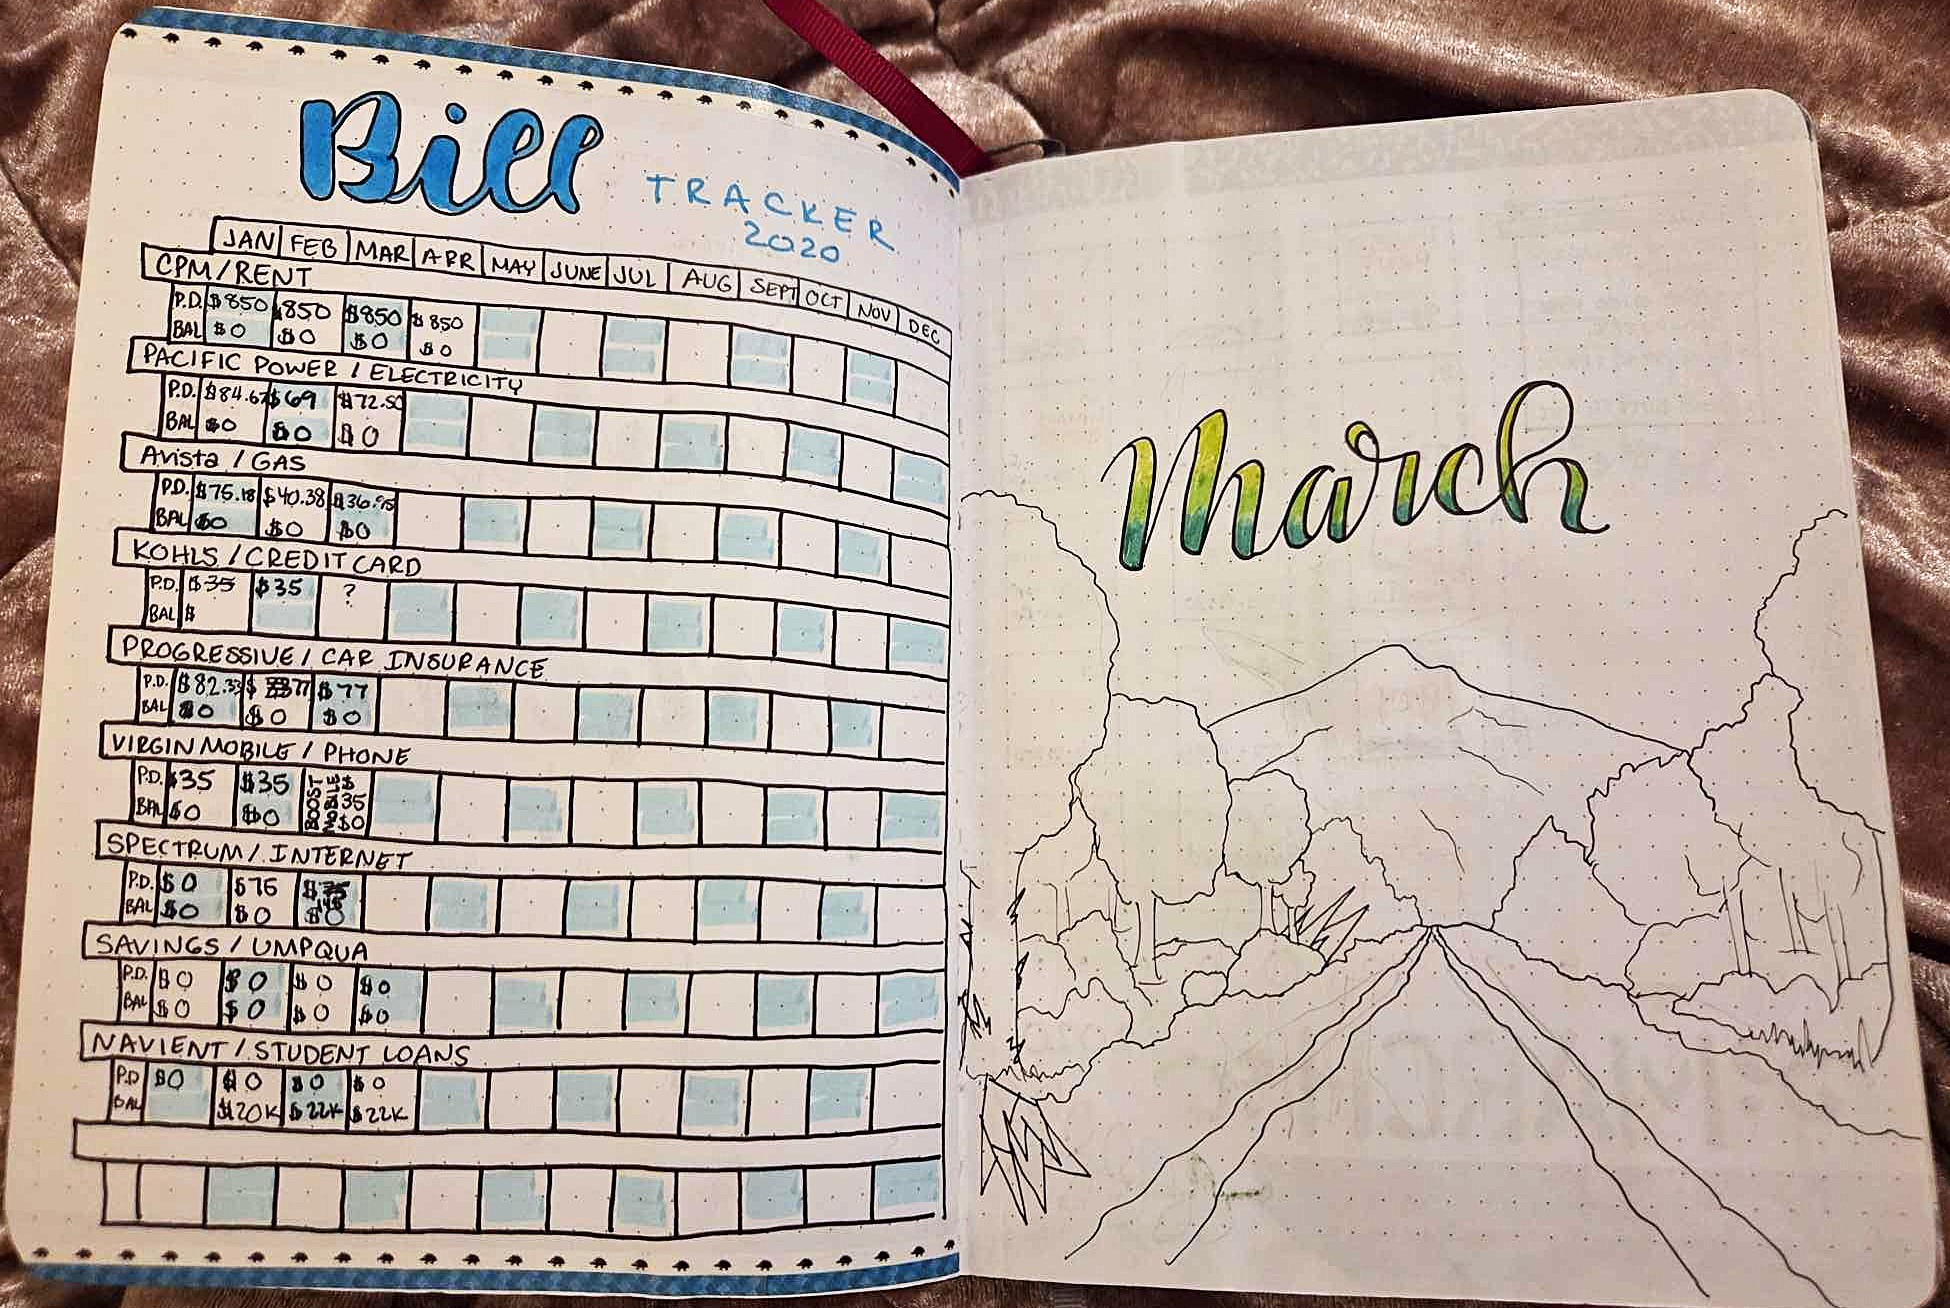 Bill
TRACKER
2020
JAN FEB MAR APR MAY JUNE JUL AUG SEPT OCT NOV DEC
CPM/RENT
P.D. $850 $850 $850 $850
BAL $0 $0 $0 $0
PACIFIC POWER / ELECTRICITY
P.D. $84.67 $69 $72.50
BAL $0 $0 $0
Avista / GAS
P.D. $75.18 $40.38 $36.95
BAL $0 $0 $0
KOHLS / CREDIT CARD
P.D. $35 $35 ?
BAL $
PROGRESSIVE / CAR INSURANCE
P.D. $82.33 $ 77 $77
BAL $0 $0 $0
VIRGIN MOBILE / PHONE
P.D. $35 $35 BOOST MOBILE $35
BAL $0 $0 $0
SPECTRUM / INTERNET
P.D. $0 $75 $
BAL $0 $0 $0
SAVINGS / UMPQUA
P.D. $0 $0 $0 $0
BAL $0 $0 $0 $0
NAVIENT / STUDENT LOANS
P.D $0 $0 $0 $0
BAL $120K $22K $22K
March